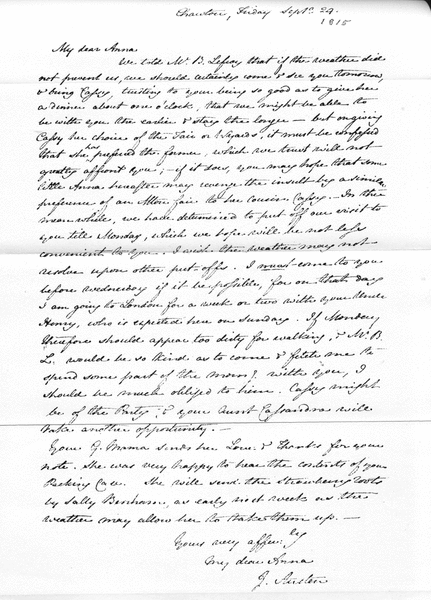 Chawton, Friday Septr. 29.
1815
My dear Anna
We told Mr. B. Lefroy that if the weather did
not prevent us, we should certainly come & see you tomorrow,
& bring Cassy, trusting to your being so good as to give her
a dinner about one o'clock, that we might be able to
be with you the earlier & stay the longer — but on giving
Cassy her choice of the Fair or Wyards, it must be confessed
that she has preferred the former, which we trust will not
greatly affront you; — if it does, you may hope that some
little Anna hereafter may revenge the insult by a similar
preference of an Alton Fair to her Cousin Cassy. In the
mean while, we have determined to put off our visit to
you till Monday, which we hope will be not less
convenient to You. I wish the weather may not
resolve upon other put-offs. I must come to you
before Wednesday if it be possible, for on that day
I am going to London for a week or two with your Uncle
Henry, who is expected here on Sunday. If Monday
therefore should appear too dirty for walking, & Mr. B.
L. would be so kind as to come & fetch me to
spend some part of the morng. with you, I
should be much obliged to him. Cassy might
be of the Party, & your Aunt Cassandra will
take another opportunity. —
Your G. Mama sends her Love & Thanks for your
note. She was very happy to hear the contents of your
Packing Case. She will send the Strawberry roots
by Sally Benham, as early next week as the
weather may allow her to take them up. —
Yours very affec:ly
My dear Anna
J. Austen